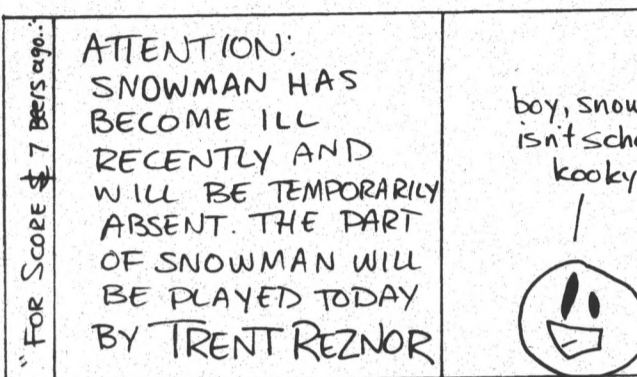 "FOR SCORE & 7 Beers ago..."
ATTENTION:
SNOWMAN HAS
BECOME ILL
RECENTLY AND
WILL BE TEMPORARILY
ABSENT. THE PART
OF SNOWMAN WILL
BE PLAYED TODAY
BY TRENT REZNOR
boy, snow
isn't scho
kooky